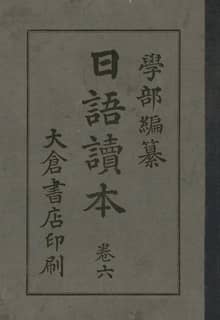 學部編纂
日語讀本
卷六
大倉書店印刷